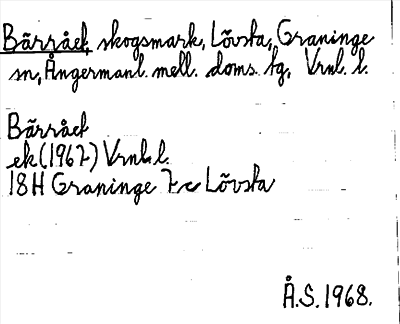 Bärrået, skogsmark, Lövsta, Graninge
sn, Ångermanl. mell. doms. tg, Vrnl. l.
Bärrået
ek (1967) Vrnl. l.
18H Graninge 7c Lövsta
Å.S. 1968.